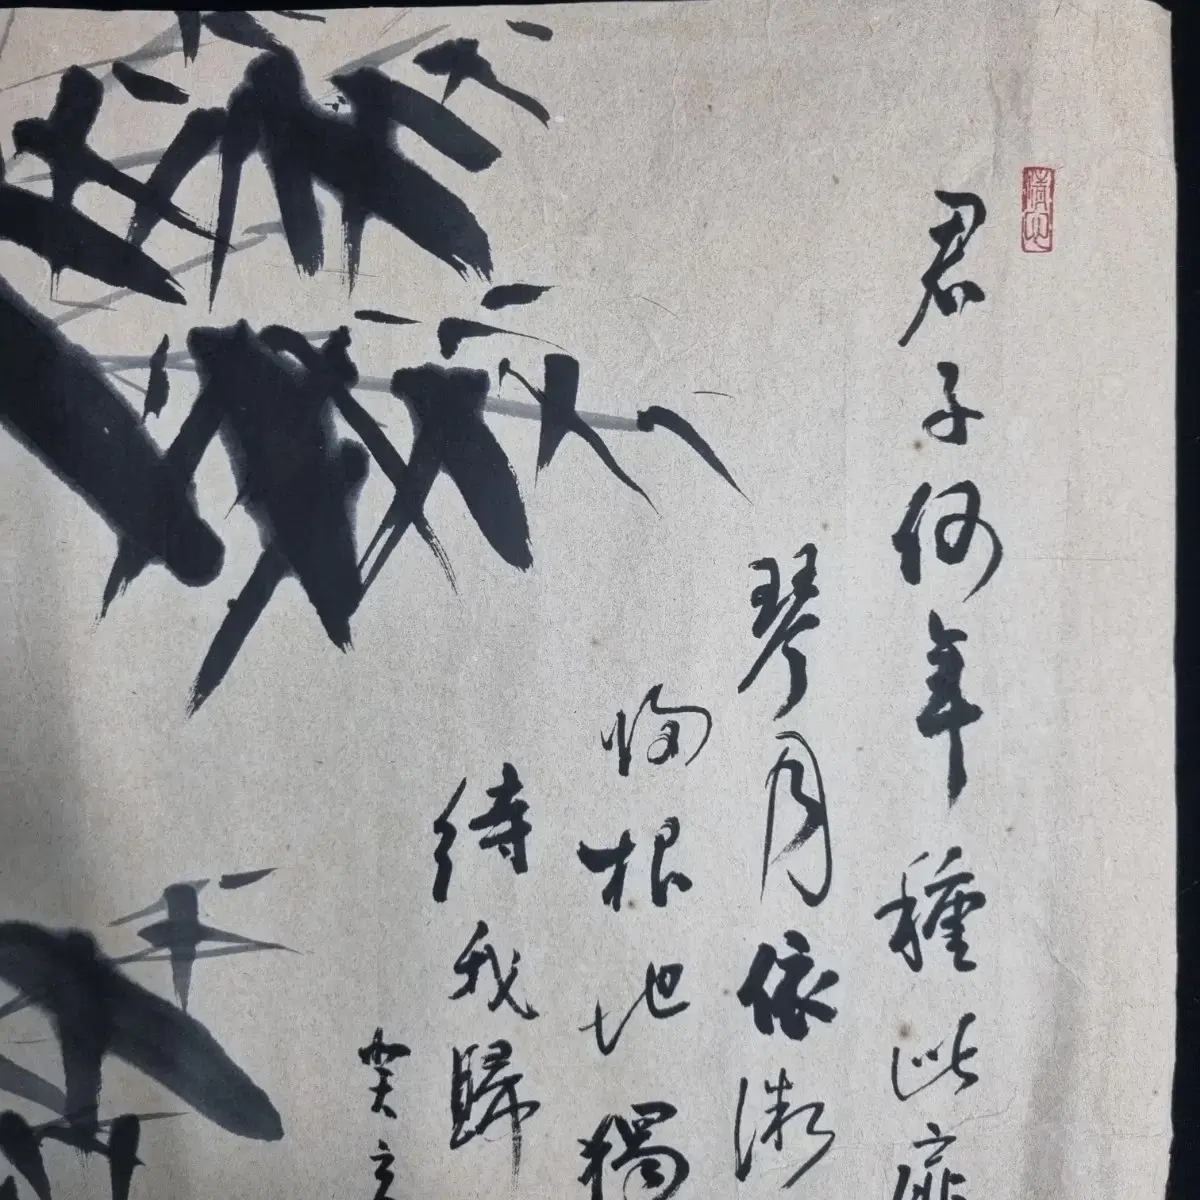 君子何年種此
琴月依
根地獨
待我歸
癸